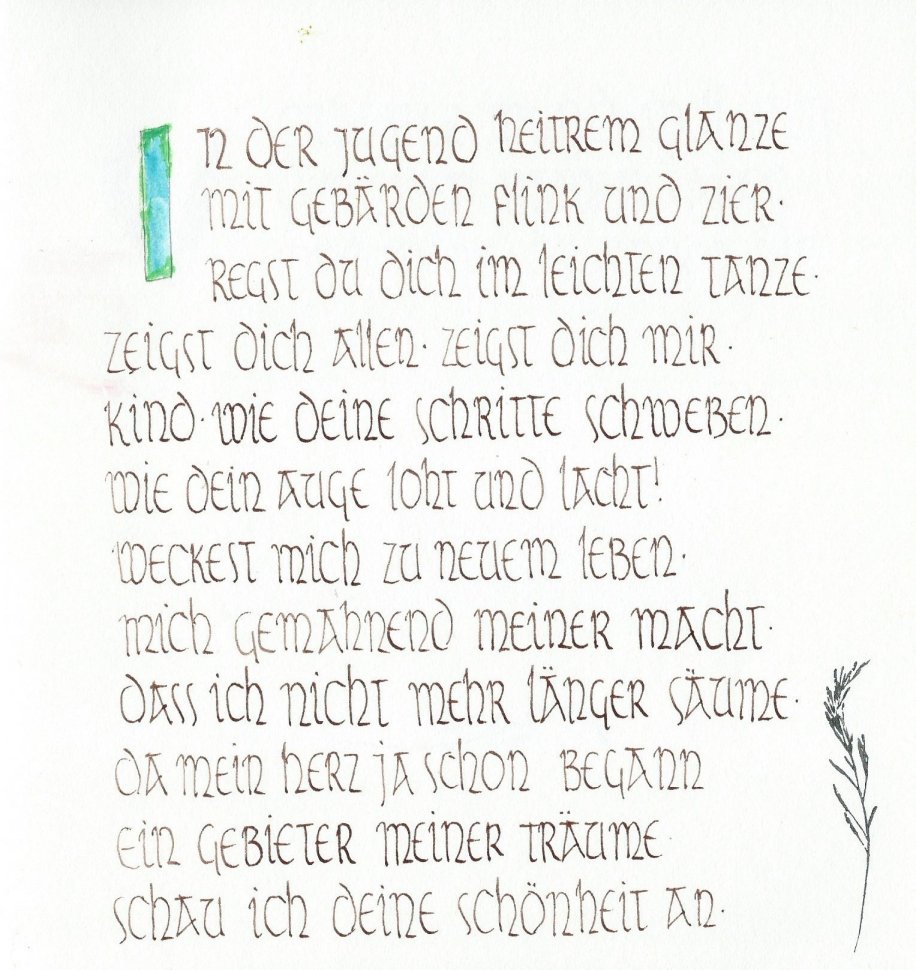 In der Jugend heitrem Glanze
mit Gebärden flink und zier·
regst du dich im leichten Tanze·
zeigst dich allen· zeigst dich mir·
Kind· wie deine Schritte schweben·
wie dein Auge loht und lacht!
weckest mich zu neuem Leben·
mich gemahnend meiner Macht·
dass ich nicht mehr länger säume·
da mein Herz ja schon begann
ein Gebieter meiner Träume·
schau ich deine Schönheit an·